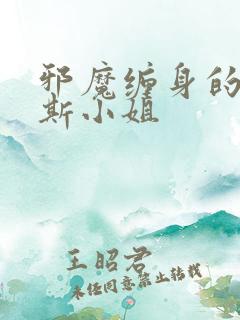 邪魔缠身的
斯小姐
王昭君
未经同意禁止转载